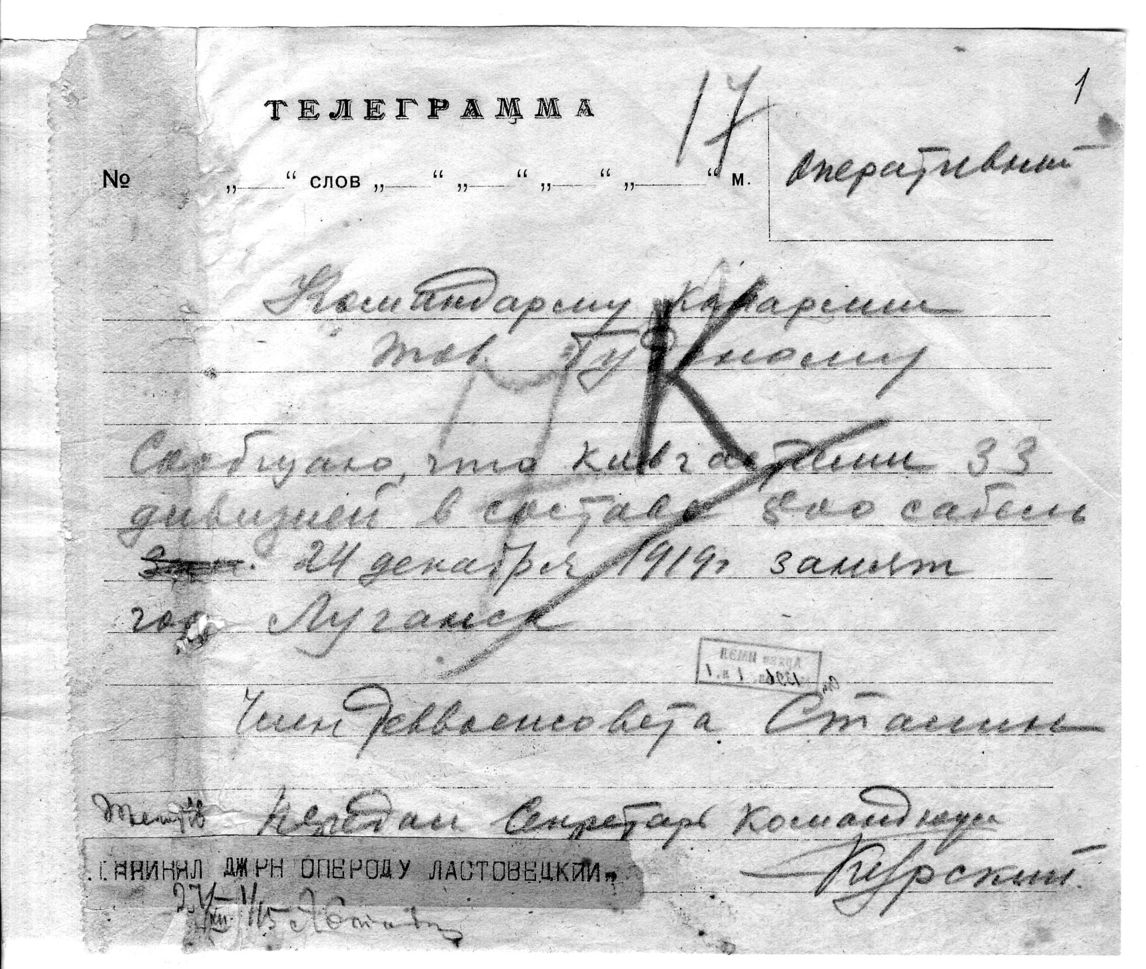 1
ТЕЛЕГРАММА
17
№ „ “ слов „ “ „ “ „ “ „ “ м.
Оперативный
Командарму конармии
тов Буденому
К
Сообщаю, что кавчастями 33
дивизией в составе 800 сабель
24 декабря 1919г занят
гор Луганск
Член Реввоенсовета Сталин
Передал Секретарь Командюж
Курский.
ПРИНЯЛ ДЖРН ОПЕРОДУ ЛАСТОВЕЦКИЙ